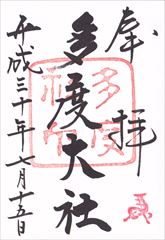 奉拝
多度大社
平成三十年七月十五日